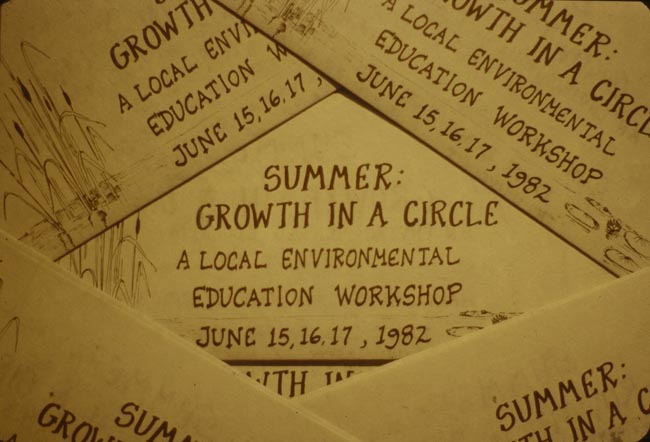 GROWTH
A LOCAL ENVI
EDUCATION W
JUNE 15, 16, 17,
SUMMER:
GROWTH IN A CIRCLE
A LOCAL ENVIRONMENTAL
EDUCATION WORKSHOP
JUNE 15, 16, 17, 1982
SUMMER:
GROWTH IN A CIRCLE
A LOCAL ENVIRONMENTAL
EDUCATION WORKSHOP
JUNE 15, 16, 17, 1982
WTH IN
SUMM
GROW
SUMMER:
TH IN A C